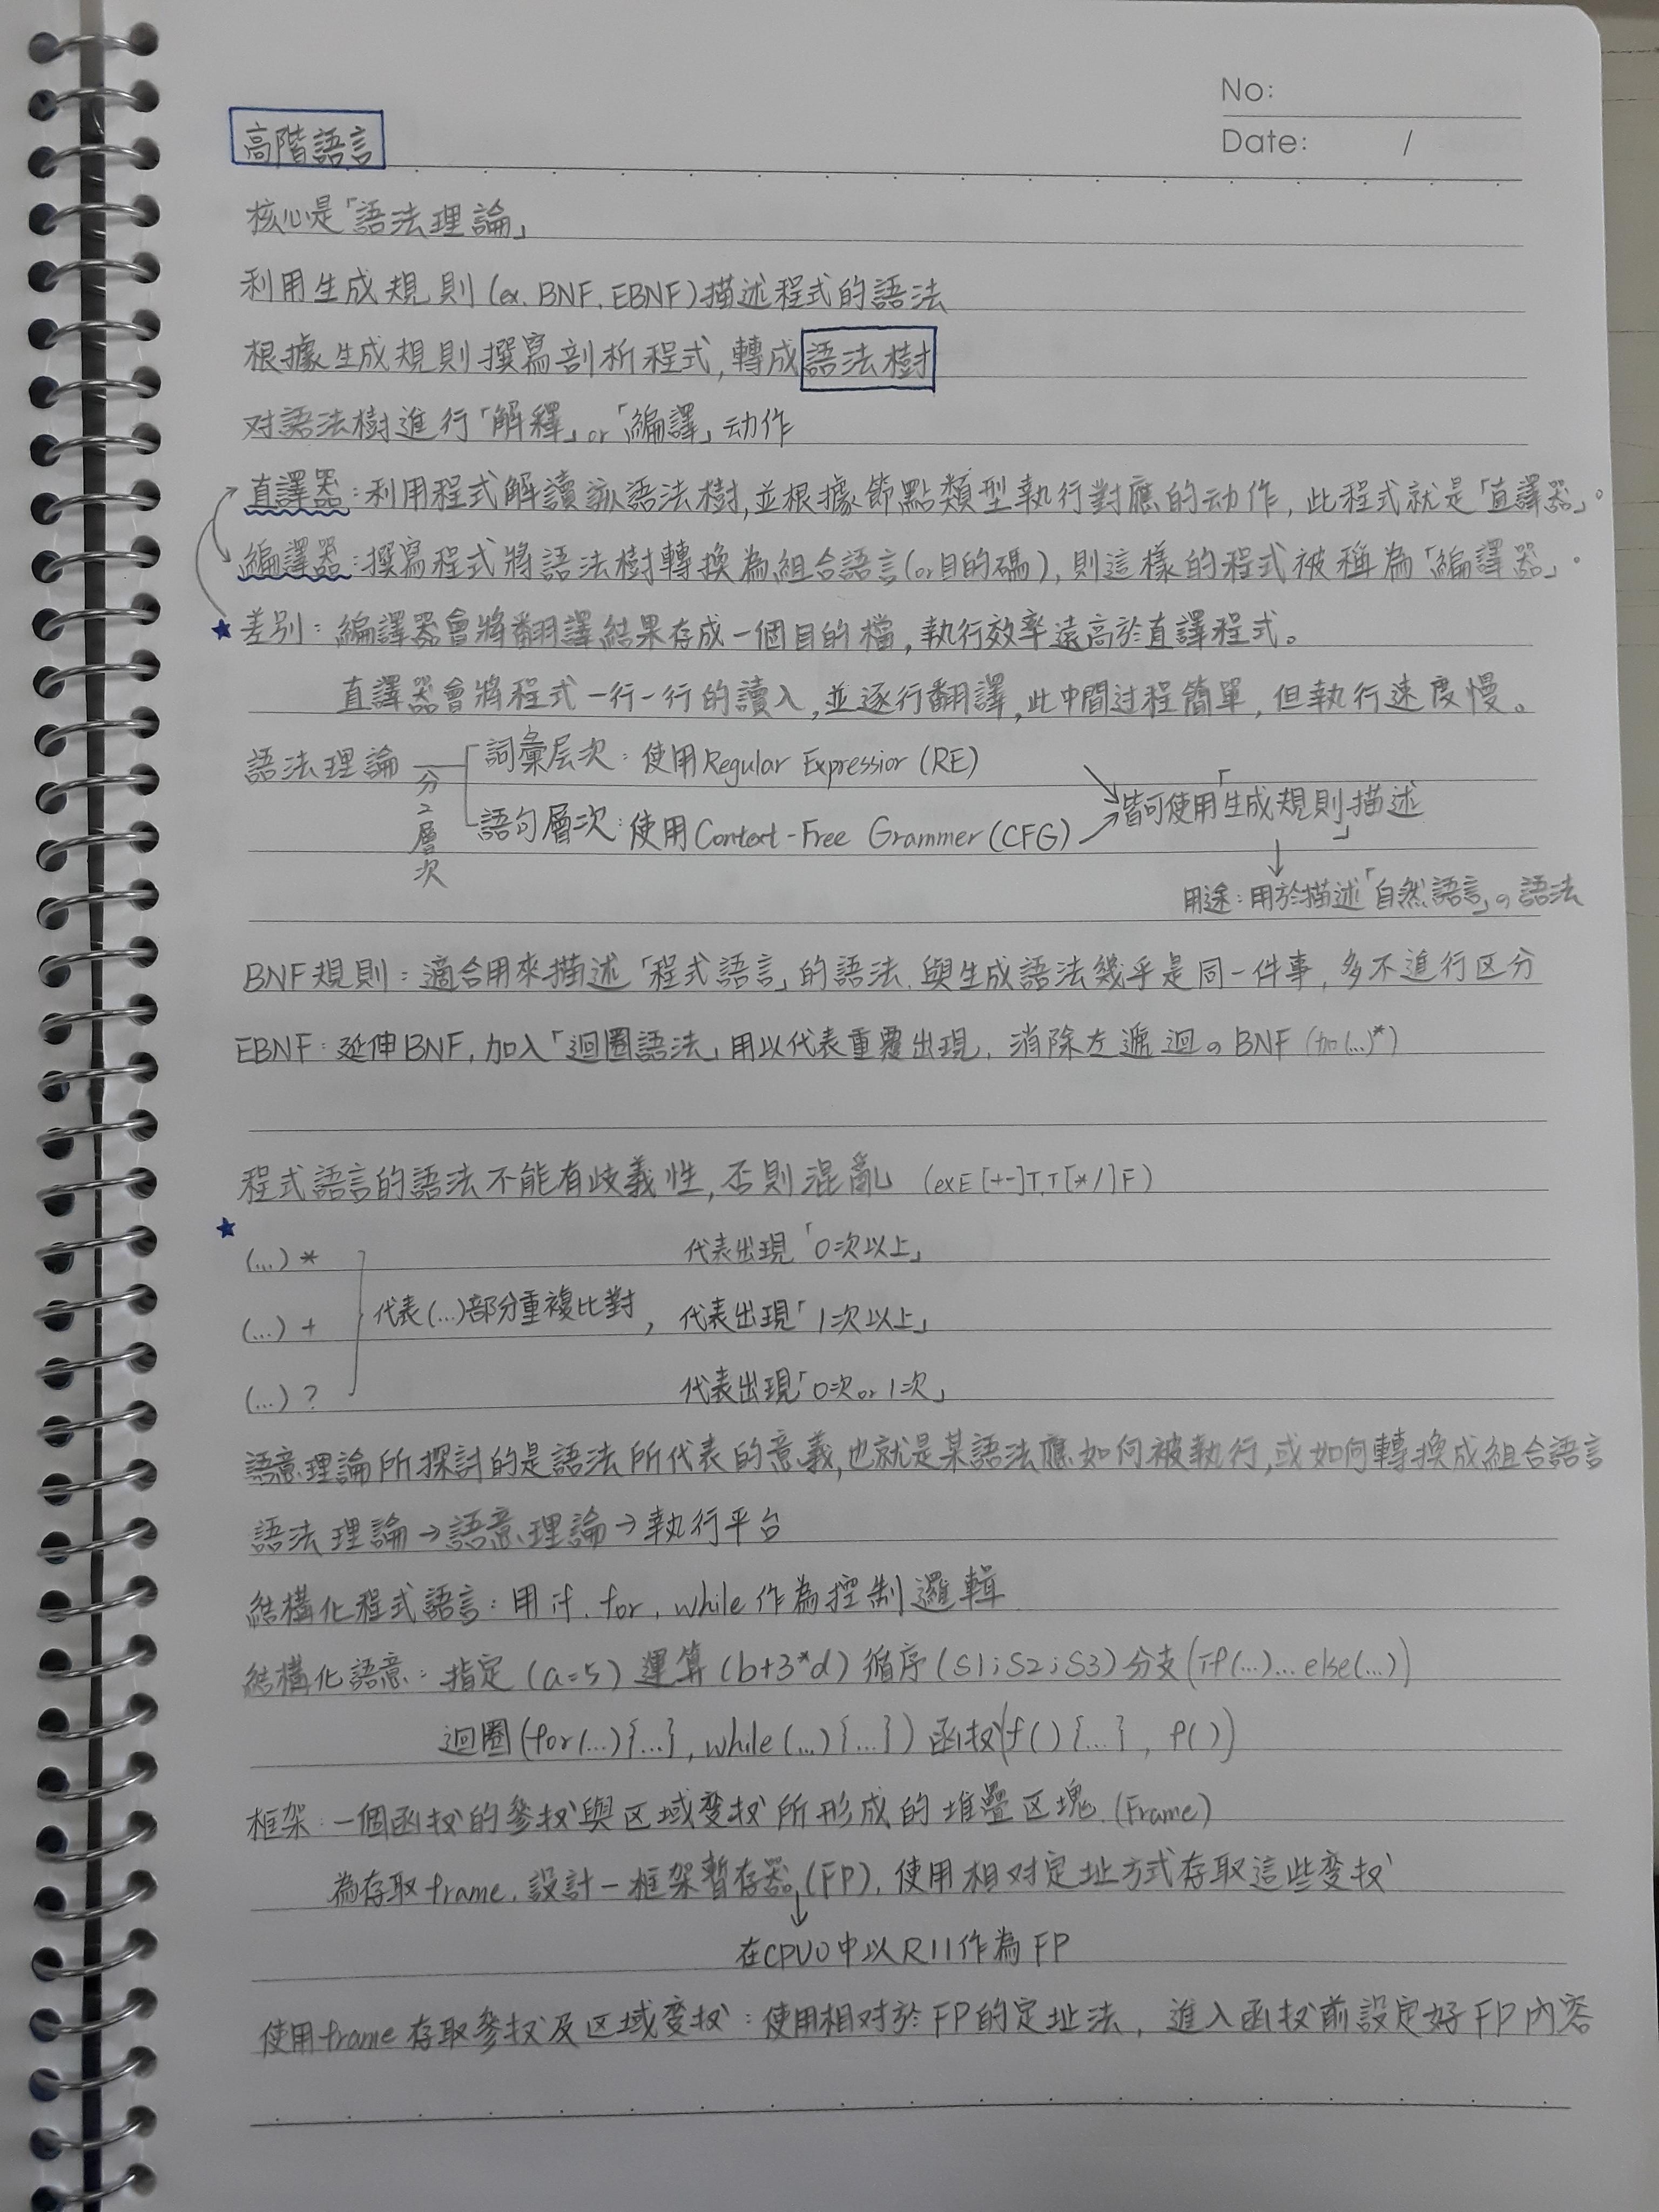 No:
Date: /
高階語言
核心是「語法理論」
利用生成規則(ex. BNF, EBNF)描述程式的語法
根據生成規則撰寫剖析程式,轉成語法樹
对語法樹進行「解釋」or「編譯」动作
直譯器:利用程式解讀該語法樹,並根據節點類型執行對應的动作,此程式就是「直譯器」。
編譯器:撰寫程式將語法樹轉換為組合語言(or目的碼),則這樣的程式被稱為「編譯器」.
★ 差別:編譯器會將翻譯結果存成一個目的檔,執行效率遠高於直譯程式。
直譯器會將程式一行一行的讀入,並逐行翻譯,此中間过程簡單,但執行速度慢。
語法理論 分2層次
詞彙层次:使用Regular Expressior (RE)
語句層次:使用Context-Free Grammer(CFG)
皆可使用「生成規則」描述
↓
用途:用於描述「自然語言」の語法
BNF規則:適合用來描述「程式語言」的語法.與生成語法幾乎是同一件事,多不進行区分
EBNF:延伸BNF,加入「迴圈語法」用以代表重覆出現,消除左遞迴の BNF (加(...)*)
程式語言的語法不能有歧義性,否則混亂 (ex E [+-]T, T[*/]F)
★
(...) * 代表出現「0次以上」
(...) + 代表(...)部分重複比對, 代表出現「1次以上」
(...) ? 代表出現「0次or 1次」
語意理論所探討的是語法所代表的意義,也就是某語法應如何被執行,或如何轉換成組合語言
語法理論→語意理論→執行平台
結構化程式語言:用if, for, while作為控制邏輯
結構化語意:指定(a=5) 運算(b+3*d) 循序(S1;S2;S3) 分支(if(...)...else(...))
迴圈(for(...){...}, while(...){...}) 函权(f(){...}, f())
框架:一個函权的參权與区域变权所形成的堆疊区塊.(Frame)
為存取frame,設計一框架暫存器(FP),使用相对定址方式存取這些变权
↓
在CPU0中以R11作為FP
使用frame存取參权及区域变权:使用相对於FP的定址法,進入函权前設定好FP內容